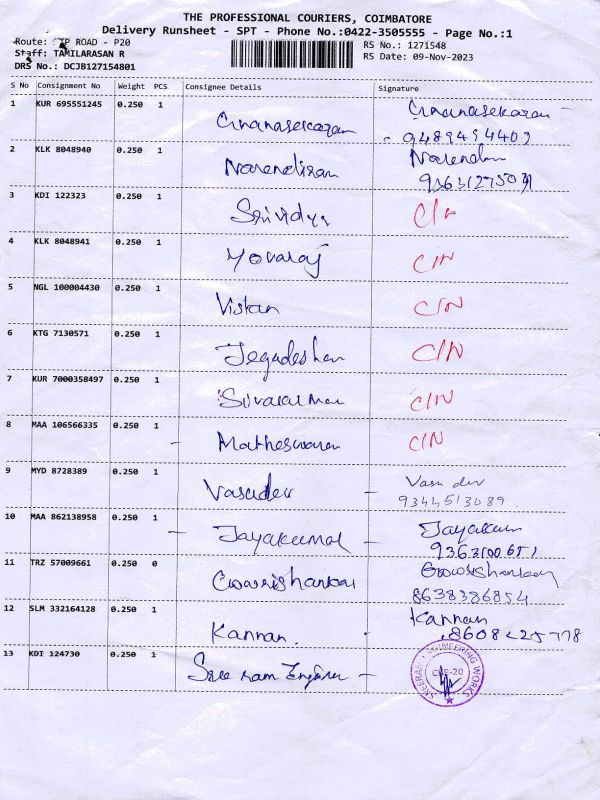 THE PROFESSIONAL COURIERS, COIMBATORE
Delivery Runsheet - SPT - Phone No.:0422-3505555 - Page No.:1
Route: ROAD - P20
RS No.: 1271548
Staff: TAMILARASAN R
RS Date: 09-Nov-2023
DRS No.: DCJB127154801
S No Consignment No Weight PCS Consignee Details Signature
1 KUR 695551245 0.250 1 Gnanasekaran Gnanasekaran
9489494402
2 KLK 8048940 0.250 1 Narendiran
3 KDI 122323 0.250 1 Srividya
4 KLK 8048941 0.250 1 Yovaraj C/N
5 NGL 100004430 0.250 1 C/N
6 KTG 7130571 0.250 1 C/N
7 KUR 7000358497 0.250 1 C/N
8 MAA 106566335 0.250 1 Matheswaran C/N
9 MYD 8728389 0.250 1 Vasudev Vasu dev
9344513089
10 MAA 862138958 0.250 1 Jayakumar
11 TRZ 57009661 0.250 0 Gowrishankar Gowrishankar
8638386854
12 SLM 332164128 0.250 1 Kannan. Kannan
13 KDI 124730 0.250 1 Sree ram
ENGINEERING WORKS
CBE-20